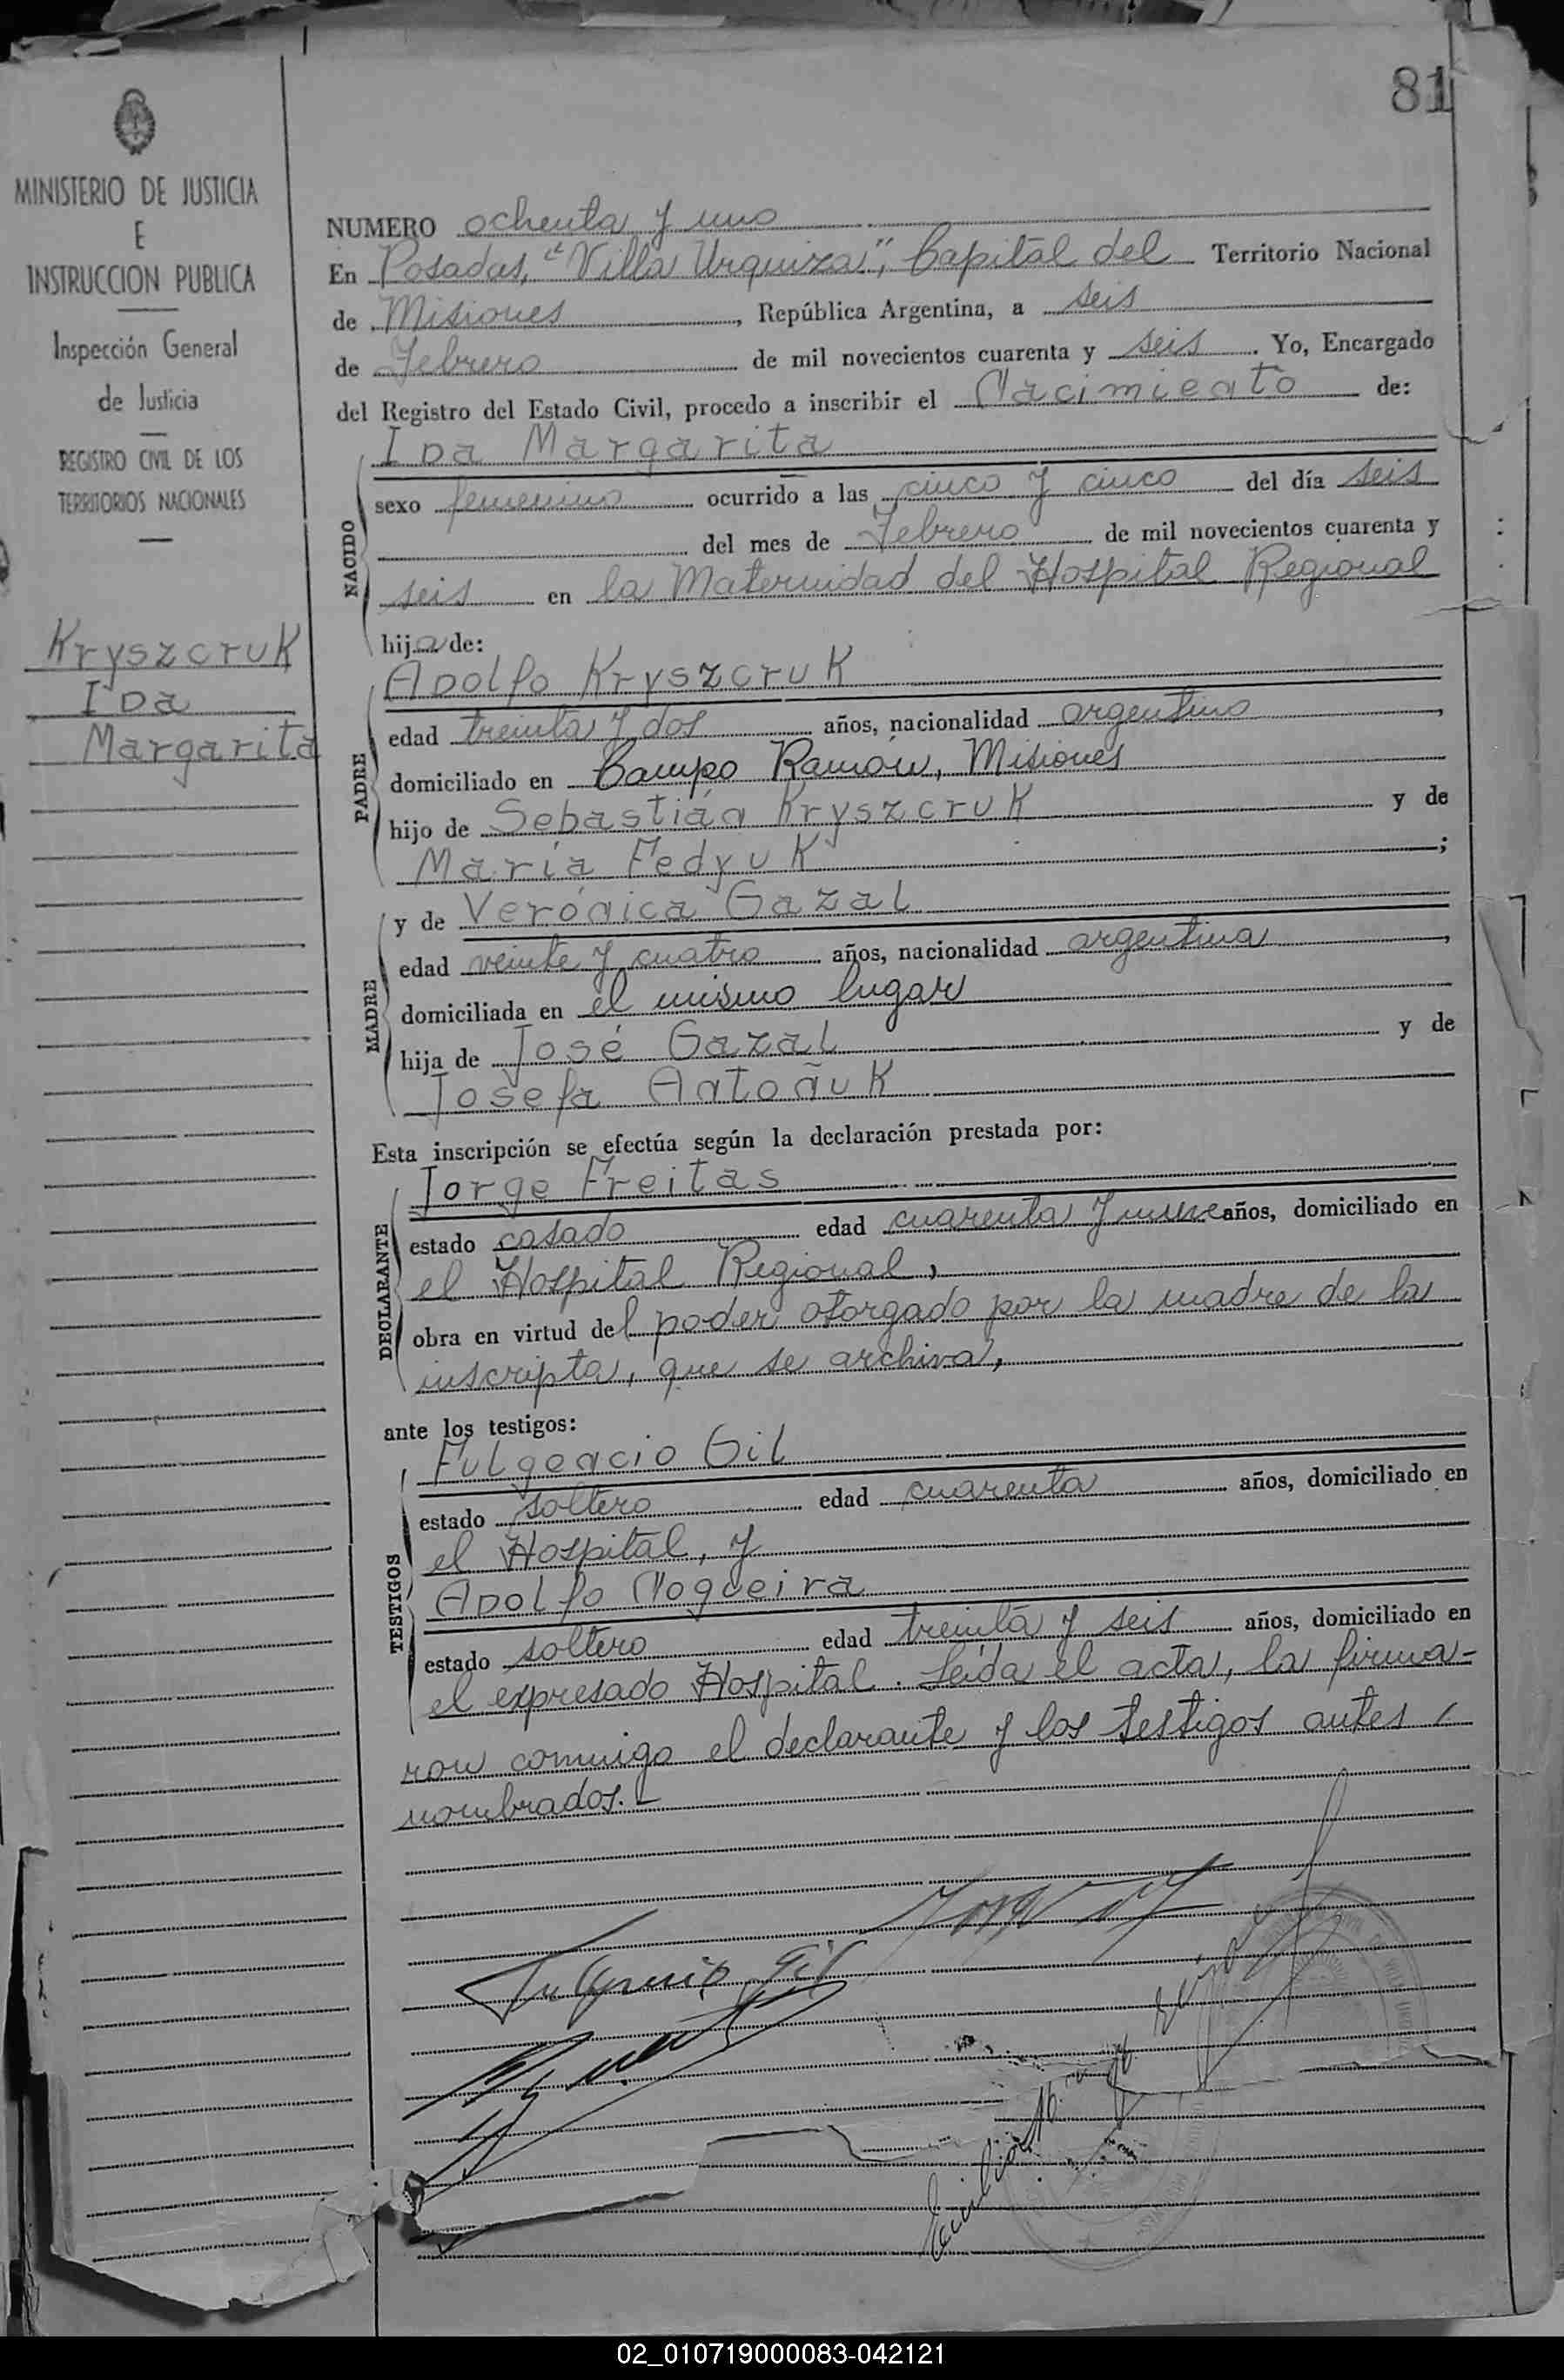 81
MINISTERIO DE JUSTICIA
E
INSTRUCCION PUBLICA
Inspección General
de Justicia
REGISTRO CIVIL DE LOS
TERRITORIOS NACIONALES
Kryszcruk
Ida
Margarita
NUMERO ochenta y uno
En Posadas, "Villa Urquiza", Capital del Territorio Nacional
de Misiones, República Argentina, a seis
de Febrero de mil novecientos cuarenta y seis. Yo, Encargado
del Registro del Estado Civil, procedo a inscribir el Nacimiento de:
Ida Margarita
NACIDO
sexo femenino ocurrido a las cinco y cinco del día seis
del mes de Febrero de mil novecientos cuarenta y
seis en la Maternidad del Hospital Regional
hija de:
PADRE
Adolfo Kryszcruk
edad treinta y dos años, nacionalidad argentino,
domiciliado en Campo Ramón, Misiones
hijo de Sebastián Kryszcruk y de
María Fedyuk;
MADRE
y de Verónica Gazal
edad veinte y cuatro años, nacionalidad argentina,
domiciliada en el mismo lugar
hija de José Gazal y de
Josefa Antoñuk
Esta inscripción se efectúa según la declaración prestada por:
DECLARANTE
Jorge Freitas
estado casado edad cuarenta y nueve años, domiciliado en
el Hospital Regional,
obra en virtud del poder otorgado por la madre de la
inscripta, que se archiva,
ante los testigos:
TESTIGOS
Fulgencio Gil
estado soltero edad cuarenta años, domiciliado en
el Hospital, y
Adolfo Nogueira
estado soltero edad treinta y seis años, domiciliado en
el expresado Hospital. Leída el acta, la firma-
ron conmigo el declarante y los testigos antes
nombrados.-
Fulgencio Gil
02_010719000083-042121